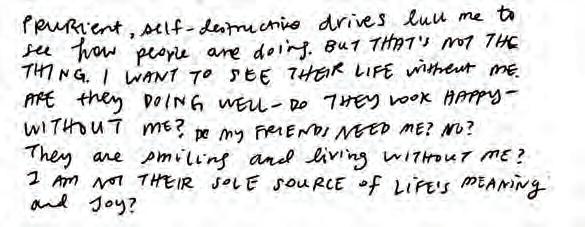 PRURIENT, self-destructive drives lull me to
see how people are doing. BUT THAT'S NOT THE
THING. I WANT TO SEE THEIR LIFE without ME.
ARE they DOING WELL - DO THEY LOOK HAPPY -
WITHOUT ME? DO MY FRIENDS NEED ME? NO?
They are smiling and living WITHOUT ME?
I AM NOT THEIR SOLE SOURCE of LIFE'S MEANING
and JOY?